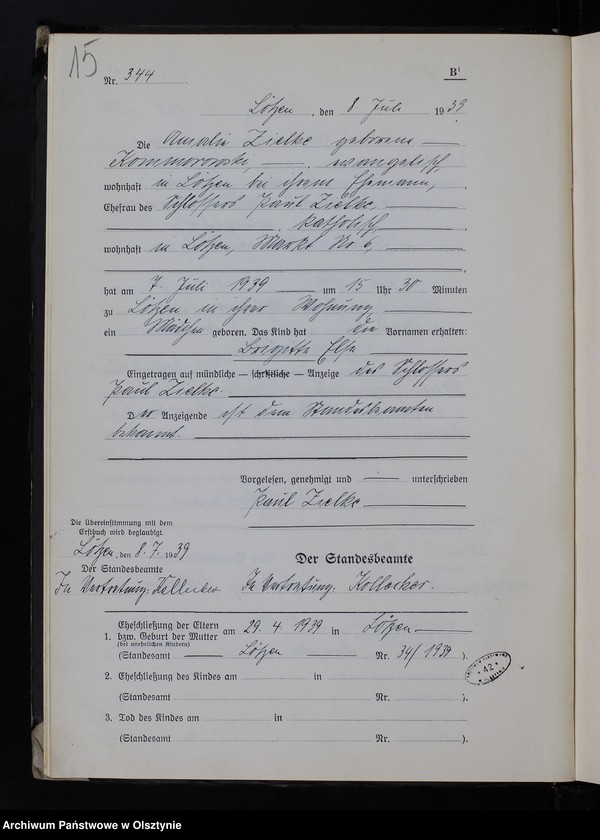 15
Nr. 344 B¹
Lötzen, den 8 Juli 1939
Die Amalie Zielke geborene
Kommorowski, evangelisch,
wohnhaft in Lötzen bei ihrem Ehemann,
Ehefrau des Schlossers Paul Zielke,
katholisch,
wohnhaft in Lötzen, Markt No 6,
hat am 7. Juli 1939 um 15 Uhr 30 Minuten
zu Lötzen in ihrer Wohnung,
ein Mädchen geboren. Das Kind hat die Vornamen erhalten:
Brigitte Else
Eingetragen auf mündliche — schriftliche — Anzeige des Schlossers
Paul Zielke.
Der Anzeigende ist dem Standesbeamten
bekannt.
Vorgelesen, genehmigt und unterschrieben
Paul Zielke
Die Übereinstimmung mit dem
Erstbuch wird beglaubigt.
Lötzen, den 8. 7. 1939
Der Standesbeamte
In Vertretung:
Der Standesbeamte
In Vertretung:
1. Eheschließung der Eltern
bzw. Geburt der Mutter am 29. 4. 1939 in Lötzen
(bei unehelichen Kindern)
(Standesamt Lötzen Nr. 34/1939 ).
2. Eheschließung des Kindes am in
(Standesamt Nr. ).
3. Tod des Kindes am in
(Standesamt Nr. ).
42
Archiwum Państwowe w Olsztynie